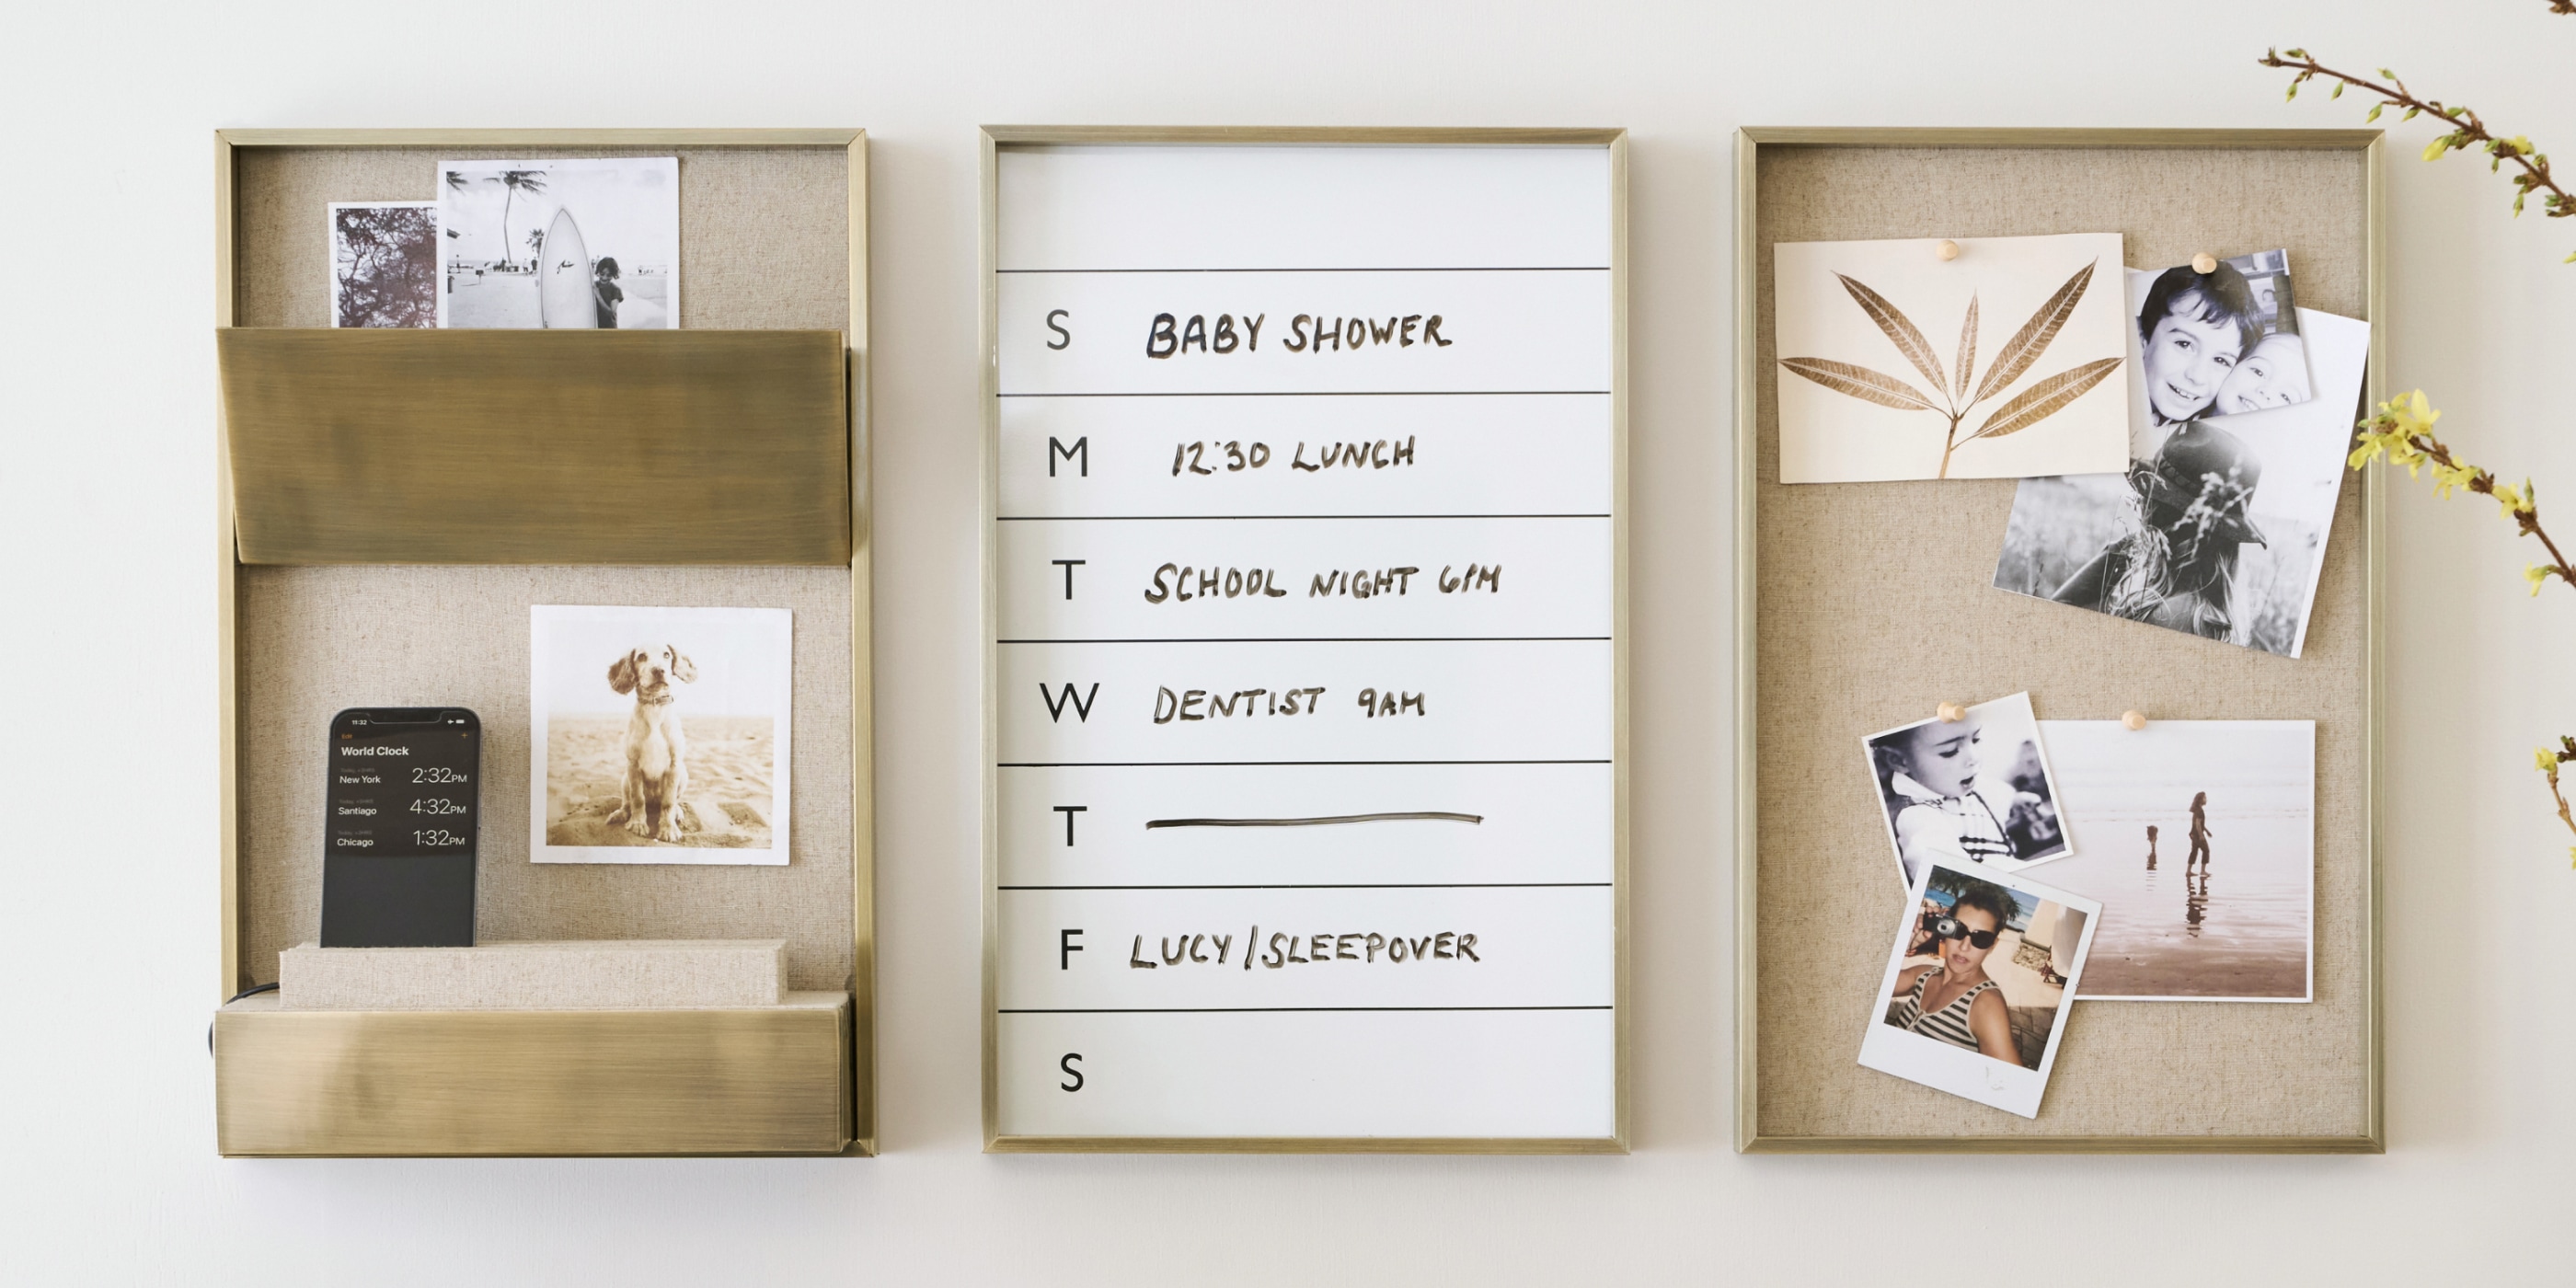 11:32
Edit
World Clock
New York 2:32PM
Santiago 4:32PM
Chicago 1:32PM
S BABY SHOWER
M 12:30 LUNCH
T SCHOOL NIGHT 6PM
W DENTIST 9AM
T
F LUCY/SLEEPOVER
S